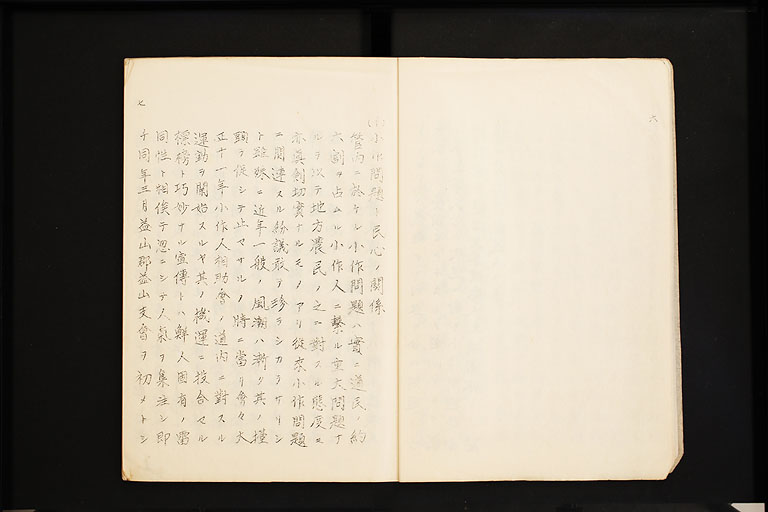 六
小作問題ト民心ノ關係
管内ニ於ケル小作問題ハ實ニ道民ノ約
六割ヲ占ムル小作人ニ繋ル重大問題ナ
ルヲ以テ地方農民ノ之ニ對スル態度モ
亦眞劍切實ナルモノアリ從來小作問題
ニ關連スル紛議敢テ珍ラシカラサリシ
ト雖殊ニ近年一般ノ風潮ハ漸ク其ノ擡
頭ヲ促シテ止マサルノ時ニ當リ會々大
正十一年小作人相助會ノ道内ニ對スル
運動ヲ開始スルヤ其ノ機運ニ投合セル
標榜ト巧妙ナル宣傳トハ鮮人固有ノ雷
同性ト相俟テ忽ニシテ人氣ヲ集注シ即
チ同年三月益山郡益山支會ヲ初メトシ
七